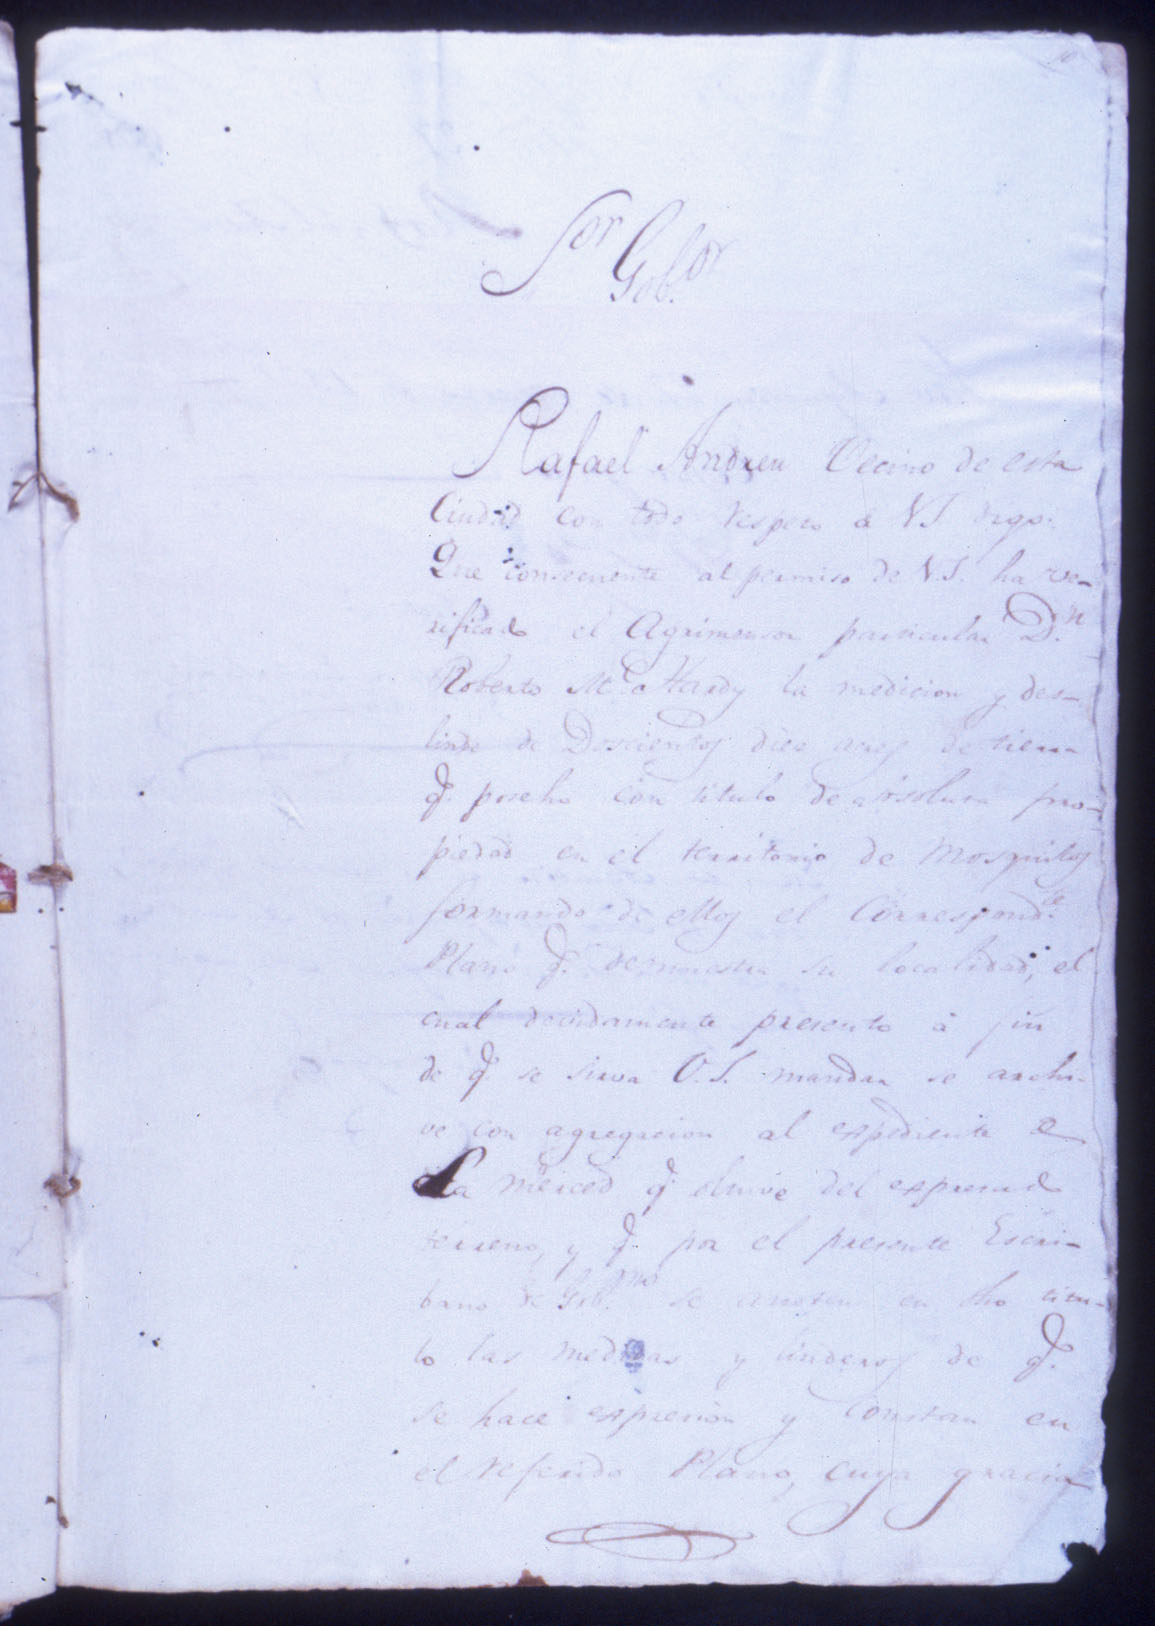 Sor Gob.or
Rafael Andreu Vecino de esta
Ciudad con todo respeto a V.S. digo:
Que conseqüente al permiso de V.S. ha ve-
rificado el Agrimensor particular D.n
Roberto Mc Hardy la medicion y des-
linde de Doscientos diez acres de tierra
q.e poseho con titulo de absoluta pro-
piedad en el territorio de Mosquitos
formando de ellos el Correspond.te
Plano q.e demuestra su localidad, el
cual devidamente presento á fin
de q.e se sirva V.S. mandar se archi-
ve con agregacion al espediente de
la merced q.e obtuve del espresado
terreno, y q.e por el presente Escri-
bano de Gob.no se anoten en dho titu-
lo las medidas y linderos de q.e
se hace espresion y constan en
el referido Plano, cuya gracia